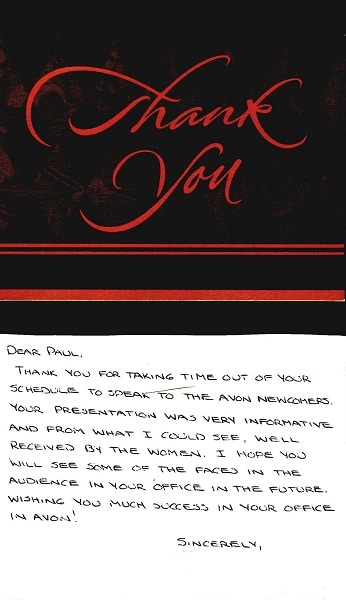 Thank
You
DEAR PAUL,
THANK YOU FOR TAKING TIME OUT OF YOUR
SCHEDULE TO SPEAK TO THE AVON NEWCOMERS.
YOUR PRESENTATION WAS VERY INFORMATIVE
AND FROM WHAT I COULD SEE, WELL
RECEIVED BY THE WOMEN. I HOPE YOU
WILL SEE SOME OF THE FACES IN THE
AUDIENCE IN YOUR OFFICE IN THE FUTURE.
WISHING YOU MUCH SUCCESS IN YOUR OFFICE
IN AVON!
SINCERELY,